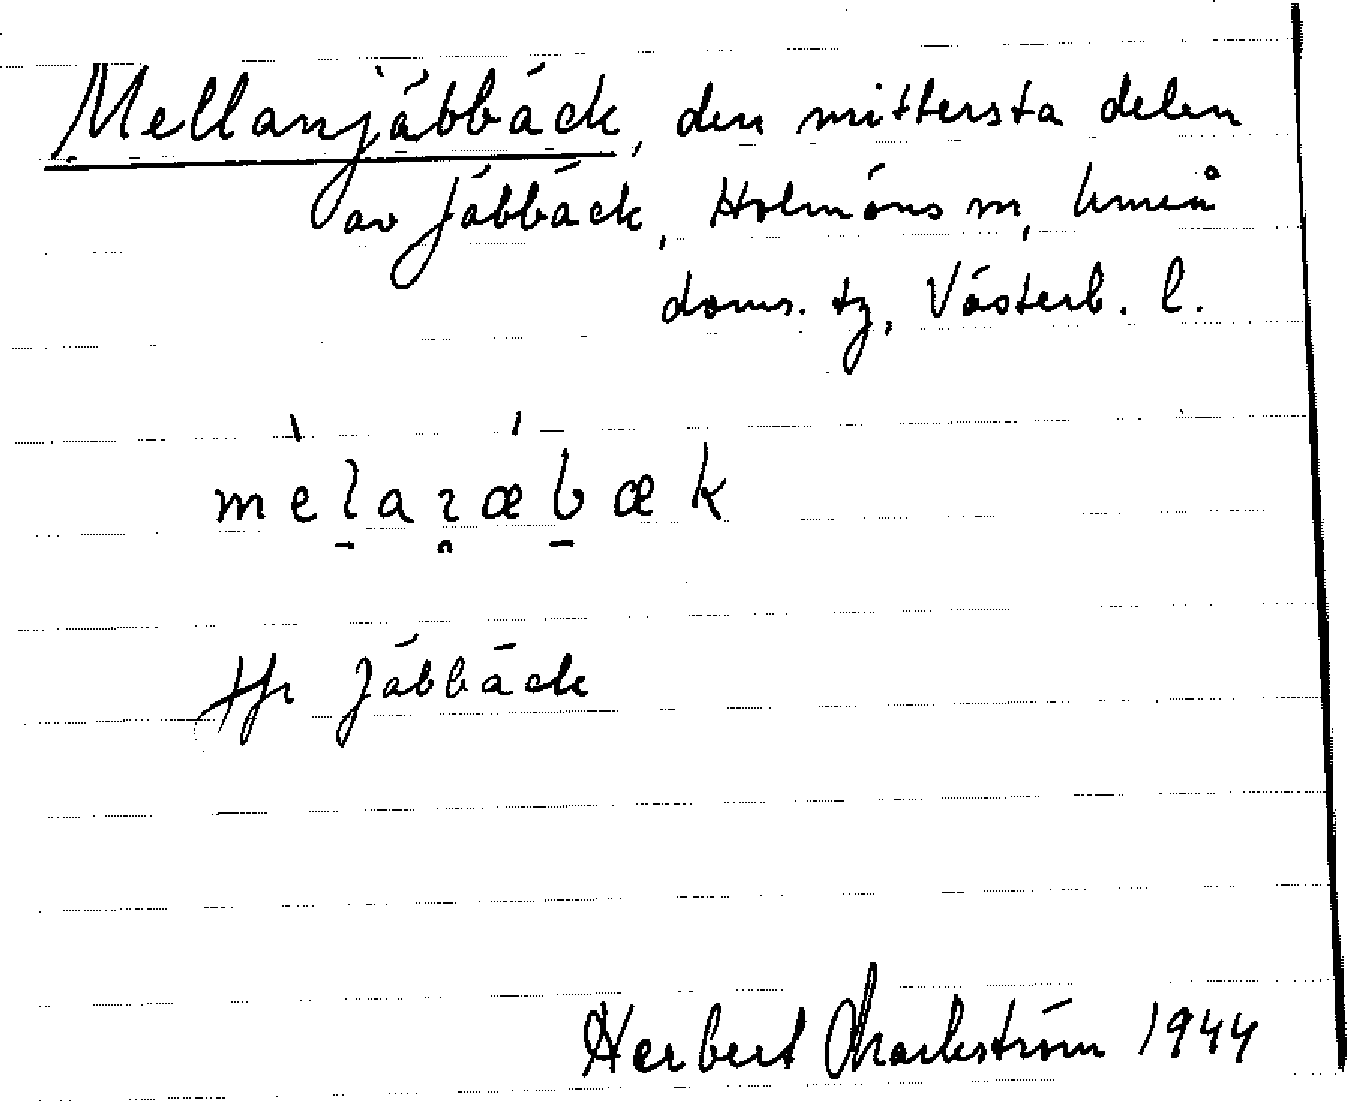 Mellanjäbbäck, den mittersta delen
av Jäbbäck, Holmöns sn, Umeå
doms. tg, Västerb. l.
mèlaɿǽbæk
Jfr Jäbbäck
Herbert Markström 1944